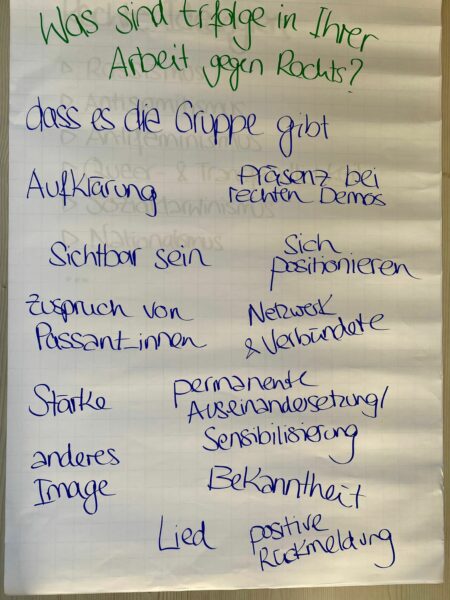 Was sind Erfolge in Ihrer
Arbeit gegen Rechts?
dass es die Gruppe gibt
Aufklärung
Präsenz bei
rechten Demos
Sichtbar sein
Sich
positionieren
Zuspruch von
Passant_innen
Netzwerk
& Verbündete
Stärke
permanente
Auseinandersetzung/
Sensibilisierung
anderes
Image
Bekanntheit
Lied
positive
Rückmeldung